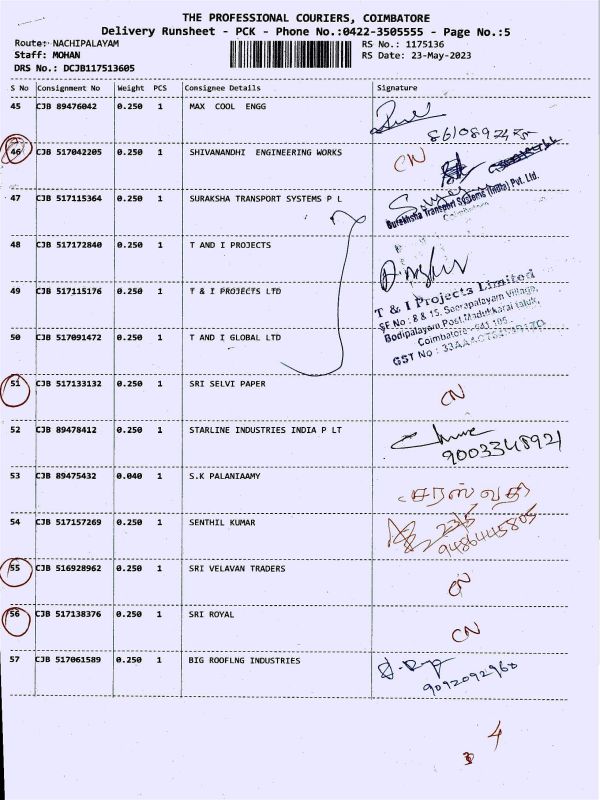 THE PROFESSIONAL COURIERS, COIMBATORE
Delivery Runsheet - PCK - Phone No.:0422-3505555 - Page No.:5
Route: NACHIPALAYAM RS No.: 1175136
Staff: MOHAN RS Date: 23-May-2023
DRS No.: DCJB117513605
S No Consignment No Weight PCS Consignee Details Signature
45 CJB 89476042 0.250 1 MAX COOL ENGG
46 CJB 517042205 0.250 1 SHIVANANDHI ENGINEERING WORKS CN
47 CJB 517115364 0.250 1 SURAKSHA TRANSPORT SYSTEMS P L
Suraksha Transport Systems (India) Pvt. Ltd.
Coimbatore
48 CJB 517172840 0.250 1 T AND I PROJECTS
49 CJB 517115176 0.250 1 T & I PROJECTS LTD
T & I Projects Limited
SF No : 8 & 15, Seerapalayam Village,
Bodipalayam Post, Madukkarai taluk,
Coimbatore - 641 105
GST No :
50 CJB 517091472 0.250 1 T AND I GLOBAL LTD
51 CJB 517133132 0.250 1 SRI SELVI PAPER CN
52 CJB 89478412 0.250 1 STARLINE INDUSTRIES INDIA P LT
9003348921
53 CJB 89475432 0.040 1 S.K PALANIAAMY
54 CJB 517157269 0.250 1 SENTHIL KUMAR
9486445805
55 CJB 516928962 0.250 1 SRI VELAVAN TRADERS CN
56 CJB 517138376 0.250 1 SRI ROYAL CN
57 CJB 517061589 0.250 1 BIG ROOFLNG INDUSTRIES
9092092960
4
3